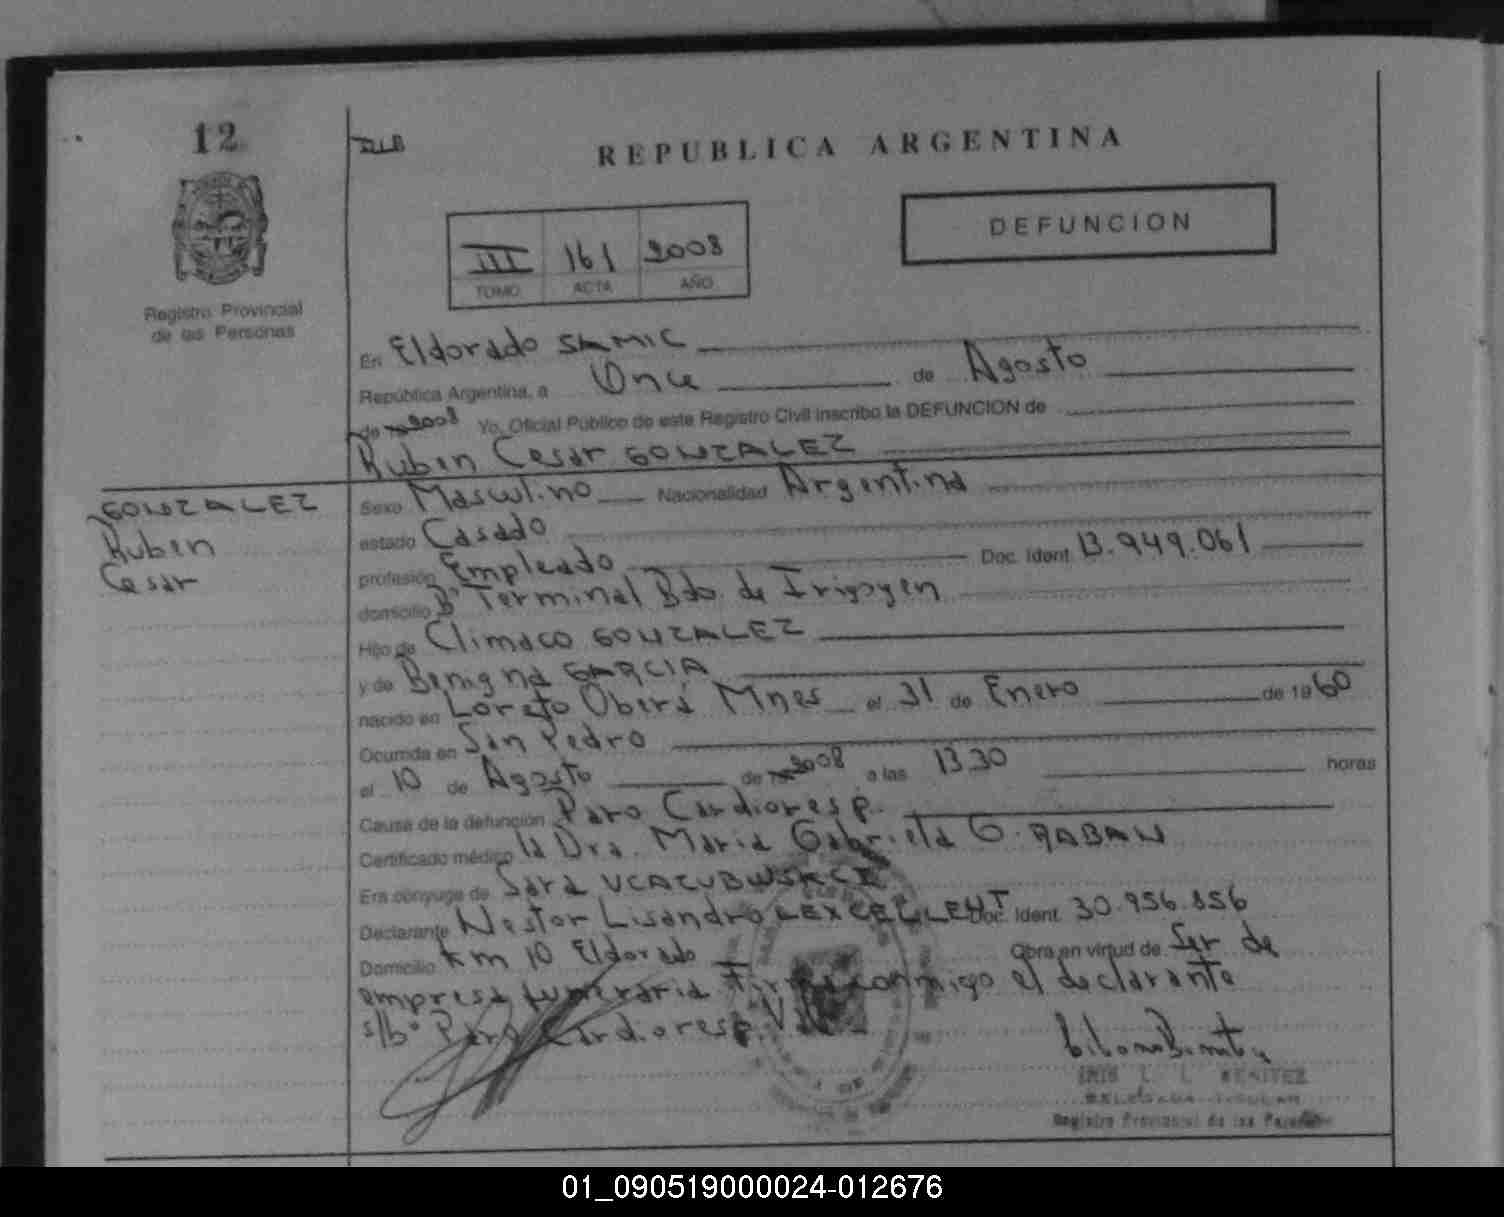 12
REPUBLICA ARGENTINA
DEFUNCION
III 161 2008
TOMO ACTA AÑO
Registro Provincial
de las Personas
En Eldorado SAMIC
República Argentina, a Once de Agosto
de 2008 Yo, Oficial Público de este Registro Civil inscribo la DEFUNCION de
Ruben Cesar GONZALEZ
GONZALEZ
Ruben
Cesar
Sexo Masculino Nacionalidad Argentina
estado Casado
profesión Empleado Doc. Ident. 13.949.061
domicilio Bº Terminal Bdo. de Irigoyen
Hijo de Climaco GONZALEZ
y de Benigna GARCIA
nacido en Loreto Oberá Mnes el 31 de Enero de 1960
Ocurrida en San Pedro
el 10 de Agosto de 2008 a las 13 30 horas
Cause de la defunción Paro Cardioresp.
Certificado médico la Dra. Maria Gabriela G. RABAN
Era cónyuge de Sara
Declarante Nestor Lisandro LEXCELLENT Doc. Ident. 30.956.856
Domicilio Km 10 Eldorado Obra en virtud de Ser de
empresa funeraria Firma conmigo el declarante
s/bº Paro Cardioresp. Vale
IRIS L. L. BENITEZ
DELEGADA TITULAR
Registro Provincial de las Personas
01_090519000024-012676